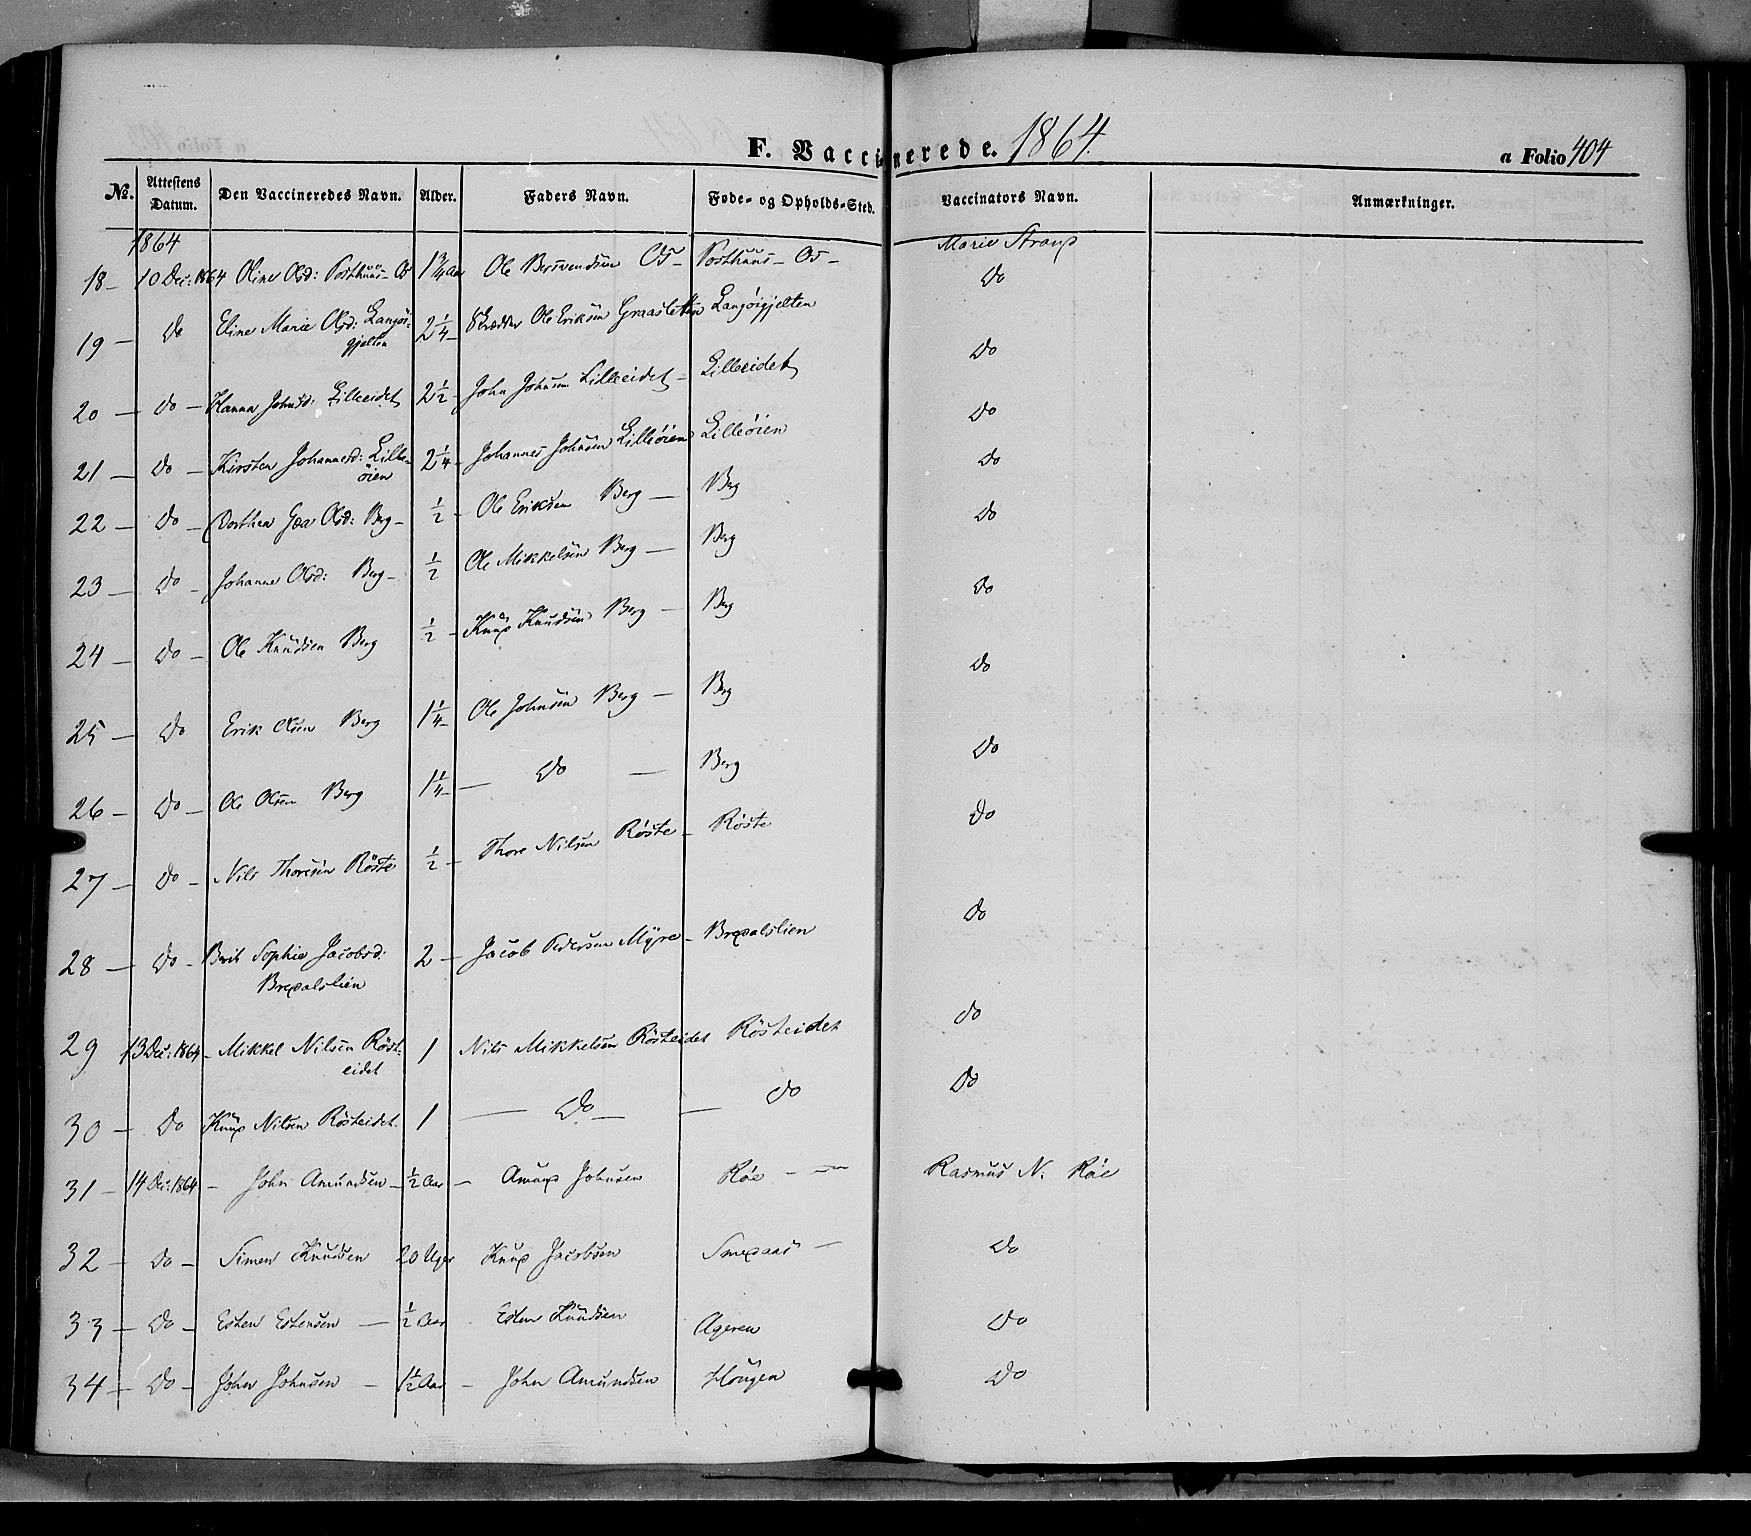 F. Vaccinerede. 1864.
a Folio 404
No. Attestens Datum. Den Vaccineredes Navn. Alder. Faders Navn. Føde- og Opholds-Sted. Vaccinators Navn. Anmærkninger.
1864
18 – 10 Dec: 1864 Oline Olsd: Posthuus – Os 1 3/4 Aar Ole Bersvendsen Os – Posthuus – Os – Marie Strand
Do
19 – Do Eline Marie Olsd: Langøi- 2 1/4 – Skrædder Ole Eriksen Graasletten Langøigjelten
gjelten
Do
20 – Do – Hanna Johnsd: Lilleeidet 2 1/2 – John Johnsen Lilleeidet – Lilleeidet
Do
21 – Do – Kirsten Johannesd: Lille- 2 1/4 – Johannes Johnsen Lilleøien Lilleøien
øien
Do
22 – Do – Dorthea Olsd: Berg – 1/2 – Ole Eriksen Berg – Berg
Do
23 – Do – Johanne Olsd: Berg – 1/2 Ole Mikkelsen Berg – Berg
Do
24 – Do – Ole Knudsen Berg 1/2 – Knud Knudsen Berg – Berg
Do
25 – Do Erik Olsen Berg 1 1/4 – Ole Johnsen Berg – Berg
Do
26 – Do – Ole Olsen Berg 1 1/4 – Do – Berg
Do
27 – Do – Nils Thoresen Røste 1/2 – Thore Nilsen Røste – Røste
Do
28 – Do – Berit Sophie Jacobsd: 2 – Jacob Pedersen Myre – Bredalslien
Bredalslien
Do
29 13 Dec: 1864 – Mikkel Nilsen Røst- 1 Nils Mikkelsen Røsteidet Røsteidet
eidet
Do
30 – Do Knud Nilsen Røsteidet. 1 – Do – – Do
31 – 14 Dec: 1864 – John Amundsen – 1/2 Aar – Amund Johnsen Røe – – Rasmus N. Røe
32 – Do – Simen Knudsen 20 Uger Knud Jacobsen Smedaas – Do
33 – Do – Esten Estensen – 1/2 Aar Esten Knudsen Ageren Do
34 – Do – John Johnsen – 1 1/2 Aar – John Amundsen Hougen Do